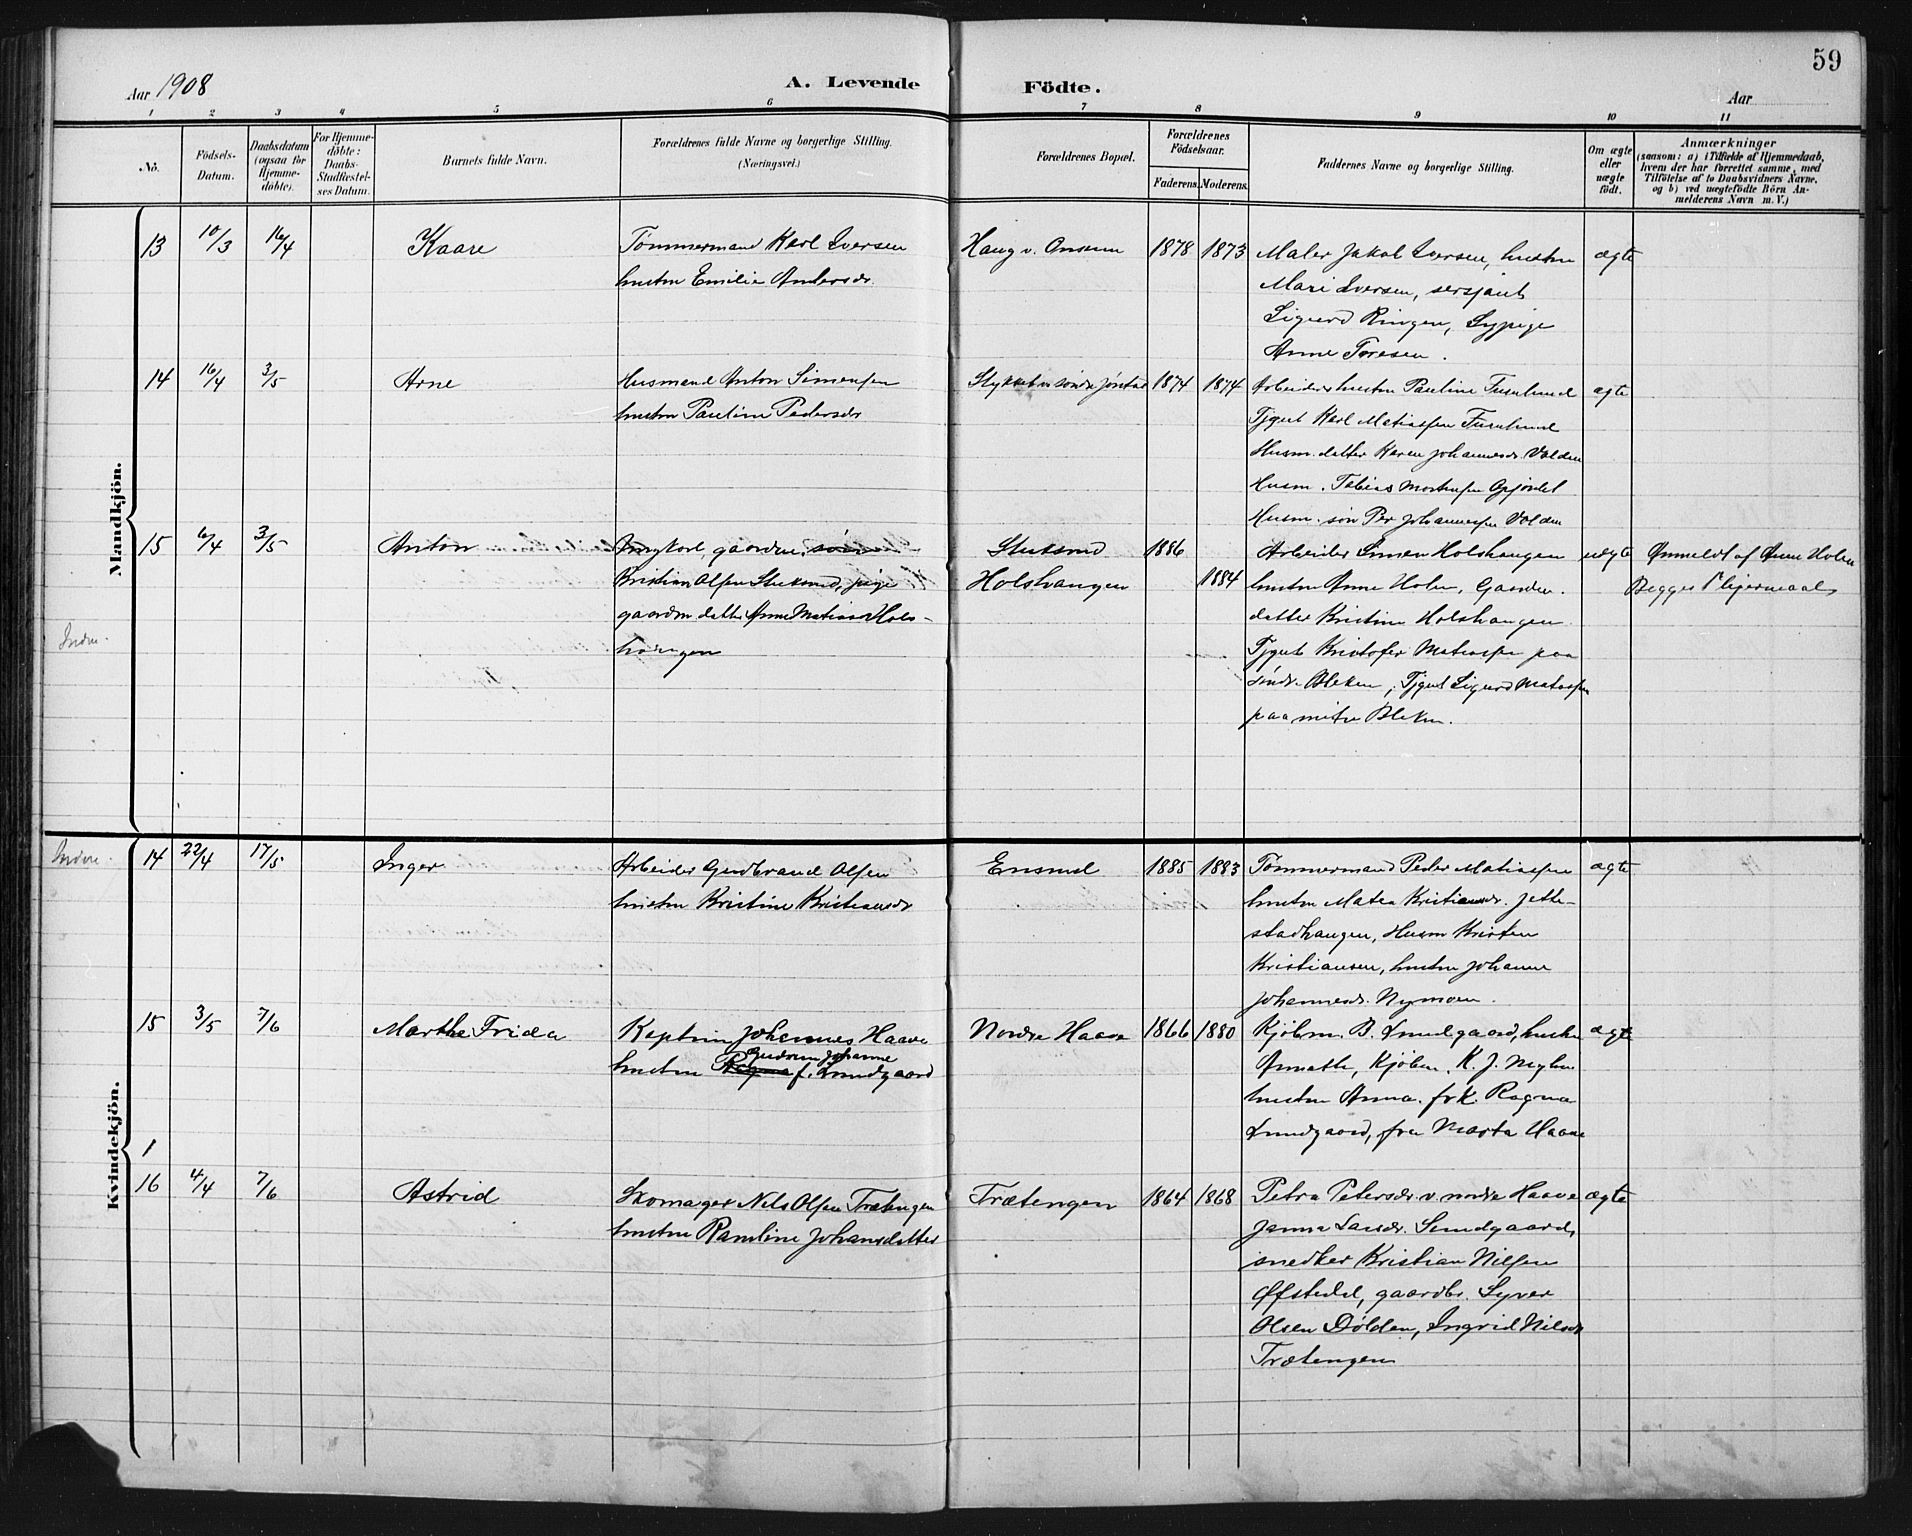 59
Aar 1908
A. Levende Födte.
Aar
1 2 3 4 5 6 7 8 9 10 11
No.
Födsels-Datum.
Daabsdatum (ogsaa for Hjemme-døbte).
For Hjemme-døbte: Daabs-Stadfæstel-ses Datum.
Barnets fulde Navn.
Forældrenes fulde Navne og borgerlige Stilling.
(Næringsvei.)
Forældrenes Bopæl.
Forældrenes Födselsaar.
Faderens. Moderens.
Faddernes Navne og borgerlige Stilling.
Om ægte eller uægte født.
Anmærkninger
(saasom: a) i Tilfælde af Hjemmedaab,
hvem der har forrettet samme, med
Tilføielse af to Daabsvidners Navne,
og b) ved uægtefödte Börn An-
melderens Navn m. V.)
Mandkjön.
13 10/3 16/4 Kaare Tømmermand Karl Iversen Haug v. 1878 1873 Maler Jakob Iversen, hustru ægte
hustru Emilie Andersdr.
Mari Iversen, sersjant
Sigurd Ringen, Sypige
Anne Toresen.
14 16/4 3/5 Arne Husmand Anton Simensen Stykket u. søndre 1874 1874 Arbeider hustru Pauline Furulund ægte
hustru Pauline Pedersdr
Tjgut Karl Matiassen Furulund
Husm. datter Karen Johannesdr. Volden
Husm. Tobias
Husm. søn Per Johannessen Volden
15 6/4 3/5 Anton Ungkarl, gaardm. søn Stuksrud 1886 Arbeider Simen Holshaugen uægte Anmeldt af Anne Holen
Kristian Olsen Stuksrud, pige Holshaugen 1884 hustru Anne Holen, Gaardm. Begges 1ste leiermaal
gaardm datter Anne Matiasdr Hols-
haugen
datter Kristine Holshaugen
Tjgut Kristofer Matiassen paa
søndr. Bleken, Tjgut Sigurd Matiassen
paa mitre Bleken.
Indre.
Kvindekjön.
Indre.
14 22/4 17/5 Inger Arbeider Gudbrand Olsen Ensrud 1885 1883 Tømmermand Peder Matiassen ægte
hustru Kristine Kristiansdr
hustru Matea Kristiansdr. Jette-
stadhaugen, Husm Kristen
Kristiansen, hustru Johanne
Johannesdr. Nymoen.
15 3/5 7/6 Marthe Frida Kaptein Johannes Haave Nordre Haave 1866 1880 Kjøbm. B. Lundgaard, hustru ægte
Gudrun Johanne
hustru Ragna f. Lundgaard
Annette, Kjøbm. K. J.
hustru Anna. frk. Ragna
Lundgaard, fru Marta Haave
1
16 4/4 7/6 Astrid Skomager Nils Olsen Trætengen Trætengen 1864 1868 Petra Petersdr. v. nordre Haave ægte
hustru Rambine Johansdatter
Janna Larsdr. Lundgaard,
snedker Kristian Nilsen
Øfstedal, gaardbr. Syver
Olsen Dølden, Ingrid Nilsdr
Trætengen